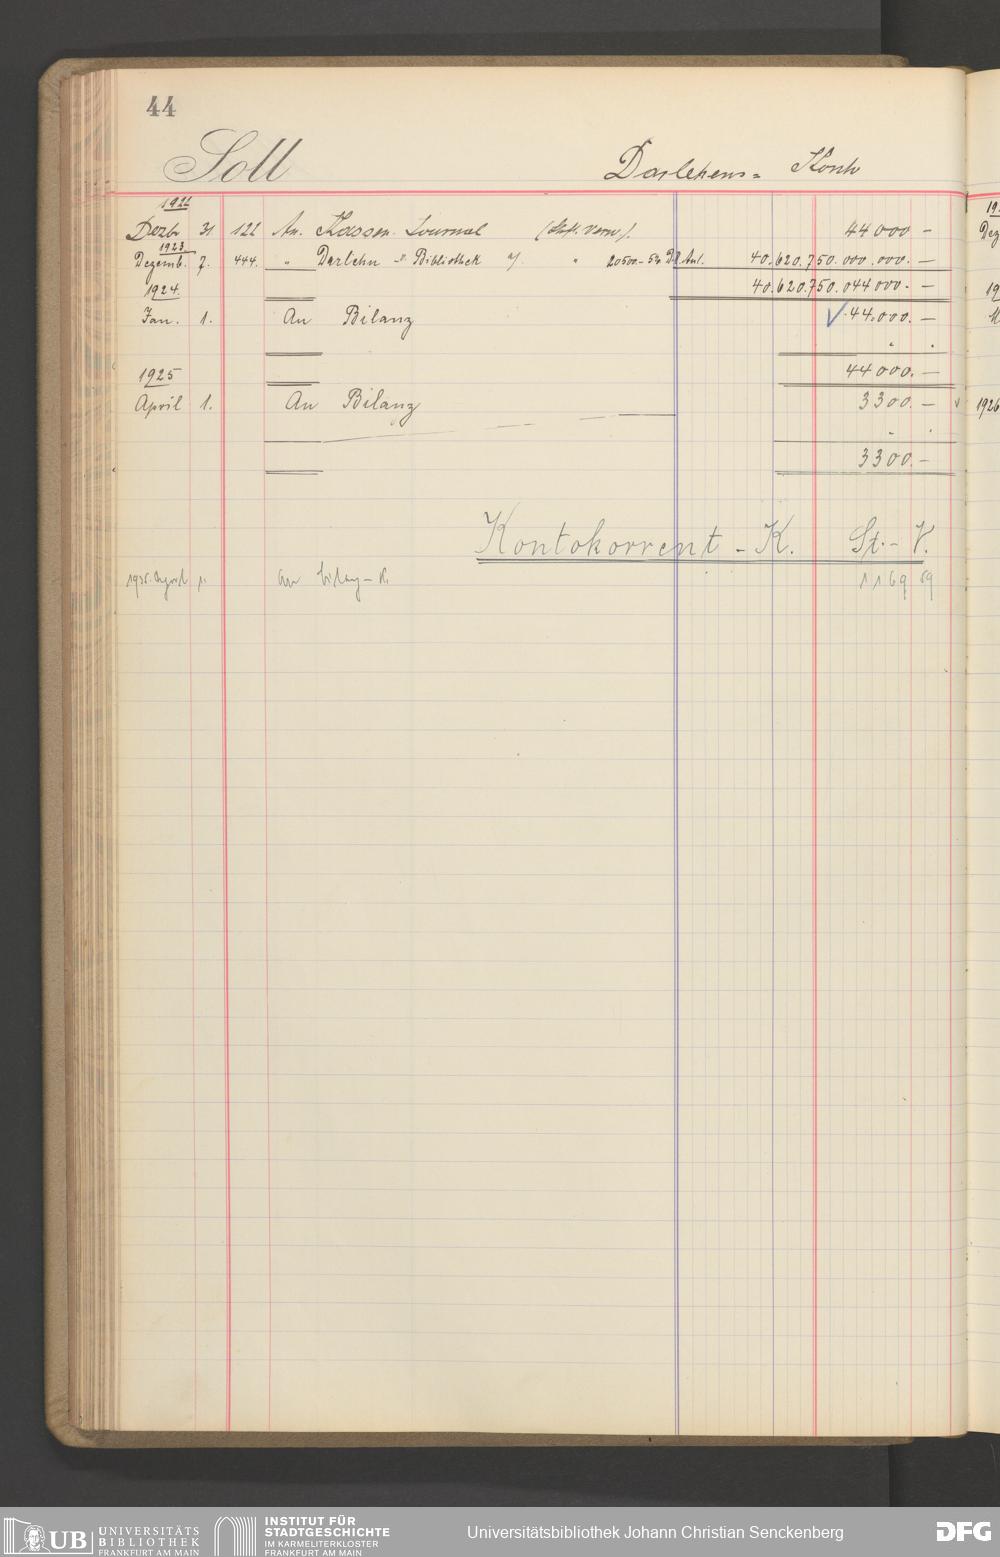 44
Soll Darlehens- Konto
1921
Dezbr 31 122 An. Kassen-Journal 44000 —
1923.
Dezemb. 7. 444. „ Darlehn Bibliothek „ 20500.- 5% D.R. Anl. 40.620.750.000.000. —
40.620.750.044000. —
1924.
Jan. 1. An Bilanz 44.000. —
44000. —
1925
April 1. An Bilanz 3300. —
1926
3300. —
Kontokorrent - K. St. - V.
April 1. an bilanz - K. 1169 59
UB UNIVERSITÄTS
BIBLIOTHEK
FRANKFURT AM MAIN
INSTITUT FÜR
STADTGESCHICHTE
IM KARMELITERKLOSTER
FRANKFURT AM MAIN
Universitätsbibliothek Johann Christian Senckenberg
DFG